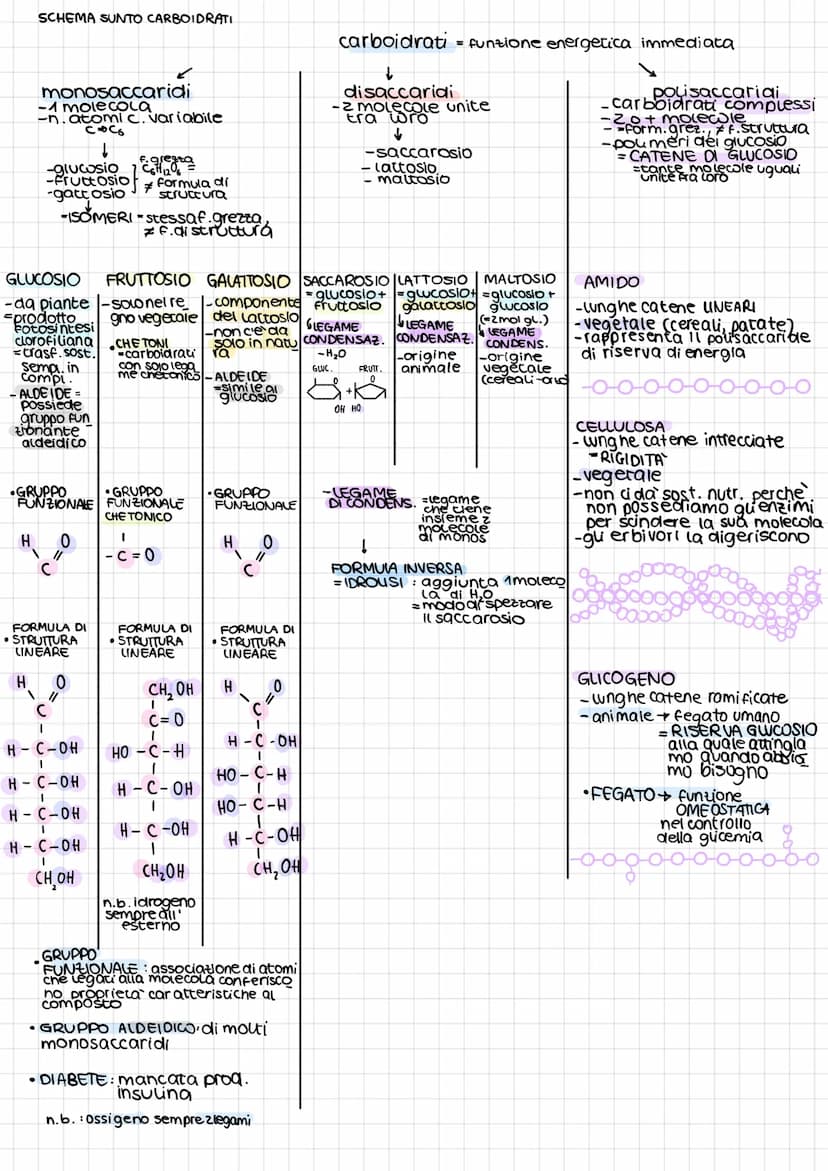 SCHEMA SUNTO CARBOIDRATI
carboidrati = funzione energetica immediata
monosaccaridi
-1 molecola
-n. atomi c. variabile
C→C6
-glucosio
-fruttosio
-gattosio
f. grezza
C6H12O6 =
≠ formula di
struttura
-ISOMERI = stessa f. grezza,
≠ f. di struttura
disaccaridi
-2 molecole unite
tra loro
-saccarosio
- lattosio
- maltosio
polisaccaridi
- carboidrati complessi
-2 o + molecole
- =form. grez., ≠ f. struttura
- polimeri dei glucosio
= CATENE DI GLUCOSIO
=tante molecole uguali
unite tra loro
GLUCOSIO
-da piante
=prodotto
fotosintesi
clorofiliana
=trasf. sost.
semp. in
compl.
- ALDEIDE =
possiede
gruppo fun
zionante
aldeidico
•GRUPPO
FUNZIONALE
H O
C
FORMULA DI
• STRUTTURA
LINEARE
H O
C
H - C - OH
H - C - OH
H - C - OH
H - C - OH
CH2OH
FRUTTOSIO
-solo nel re
gno vegetale
•CHETONI
=carboidrati
con solo lega
me chetonico
•GRUPPO
FUNZIONALE
CHETONICO
- C = O
FORMULA DI
• STRUTTURA
LINEARE
CH2OH
C = O
HO - C - H
H - C - OH
H - C - OH
CH2OH
n.b. idrogeno
sempre all'
esterno
GALATTOSIO
-componente
del lattosio
-non c'è da
solo in natu
ra
-ALDEIDE
=simile al
glucosio
•GRUPPO
FUNZIONALE
H O
C
FORMULA DI
• STRUTTURA
LINEARE
H O
C
H - C - OH
HO - C - H
HO - C - H
H - C - OH
CH2OH
SACCAROSIO
=glucosio+
fruttosio
LEGAME
CONDENSAZ.
-H2O
GLUC. FRUTT.
O + O
OH HO
LATTOSIO
=glucosio+
galattosio
LEGAME
CONDENSAZ.
-origine
animale
MALTOSIO
=glucosio +
glucosio
(=2mol gl.)
LEGAME
CONDENS.
-origine
vegetale
-LEGAME
DI CONDENS. =legame
che tiene
insieme 2
molecole
di monos
FORMULA INVERSA
=IDROLISI : aggiunta 1 moleco
la di H2O
=modo di spezzare
il saccarosio
AMIDO
-lunghe catene LINEARI
-vegetale (cereali, patate)
-rappresenta il polisaccaride
di riserva di energia
CELLULOSA
- lunghe catene intrecciate
= RIGIDITÀ
-vegetale
-non ci dà sost. nutr. perchè
non possediamo gli enzimi
per scindere la sua molecola
-gli erbivori la digeriscono
GLICOGENO
- lunghe catene ramificate
- animale → fegato umano
= RISERVA GLUCOSIO
alla quale attingia
mo quando abbia
mo bisogno
•FEGATO → funzione
OMEOSTATICA
nel controllo
della glicemia
• GRUPPO
FUNZIONALE : associazione di atomi
che legati alla molecola conferisco
no proprietà caratteristiche al
composto
• GRUPPO ALDEIDICO: di molti
monosaccaridi
• DIABETE: mancata prod.
insulina
n.b. : ossigeno sempre 2 legami